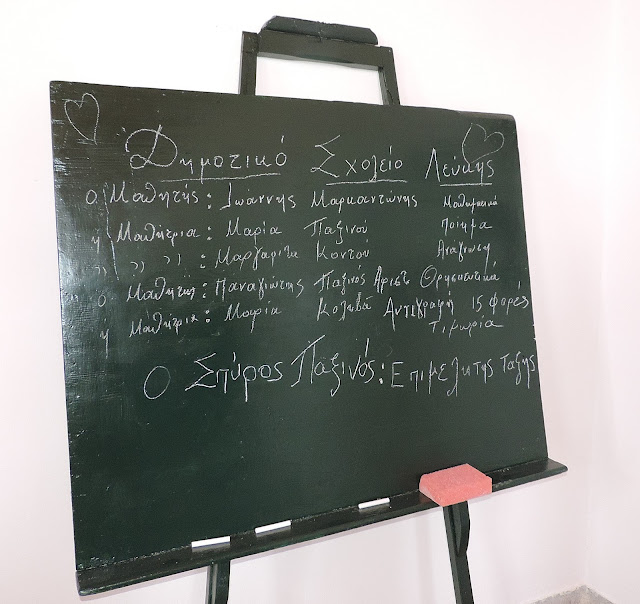 Δημοτικό Σχολείο Λεύκης
ο Μαθητής: Ιωάννης Μαρκαντώνης Μαθηματικά
η Μαθήτρια: Μαρία Παξινού Ποίημα
" " " : Μαργαρίτα Κοντού Ανάγνωση
ο Μαθητής: Παναγιώτης Παξινός Άριστ Θρησκευτικά
η Μαθήτρια: Μαρία Κολυβά Αντιγραφή 15 φορές
Τιμωρία
Ο Σπύρος Παξινός: Επιμελητής Τάξης